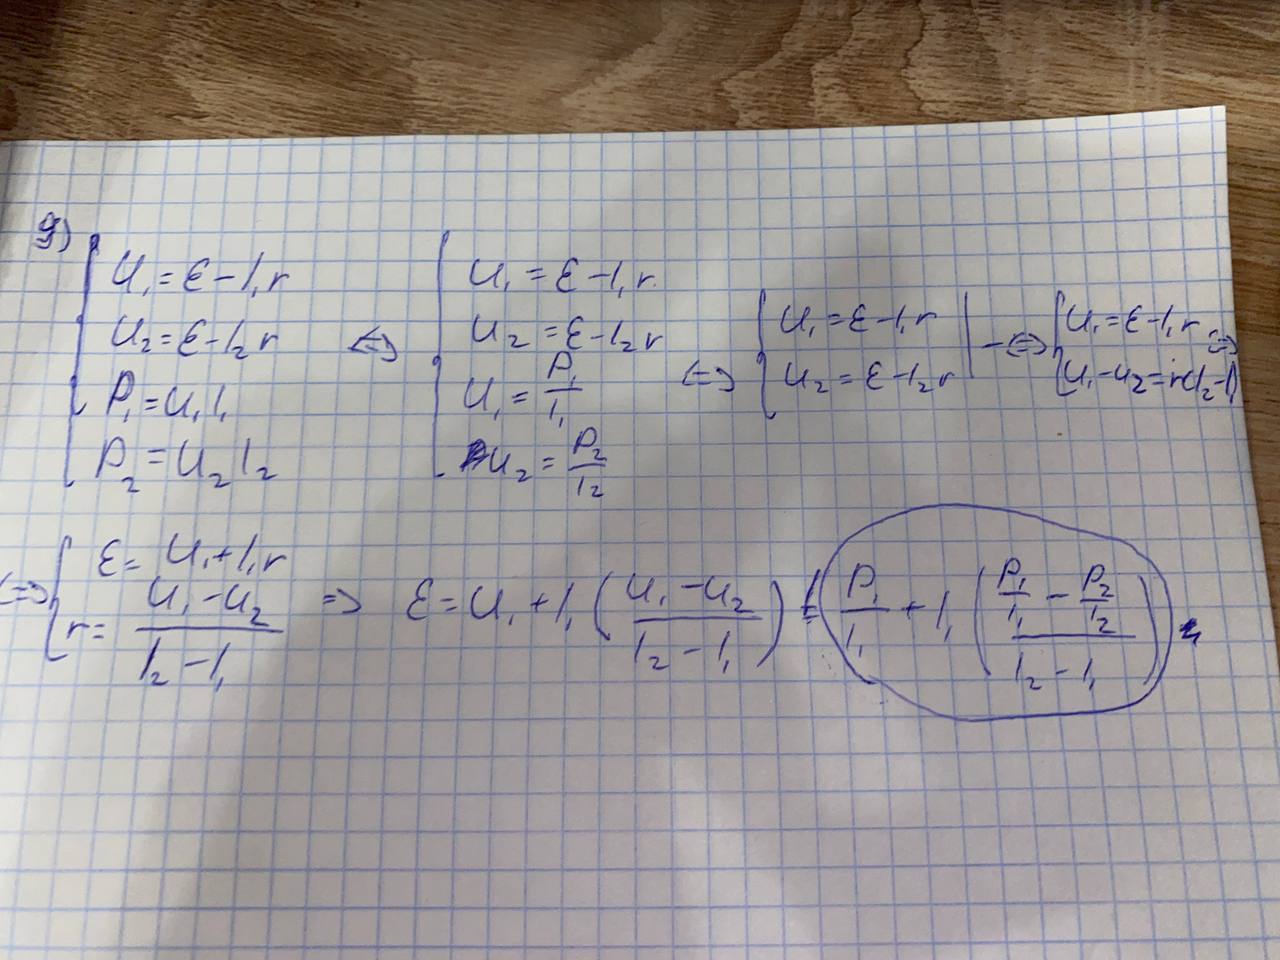 9)
U₁ = ε - I₁r
U₂ = ε - I₂r
P₁ = U₁I₁
P₂ = U₂I₂
<=>
U₁ = ε - I₁r
U₂ = ε - I₂r
U₁ = P₁/I₁
U₂ = P₂/I₂
<=>
U₁ = ε - I₁r
U₂ = ε - I₂r
| - <=>
U₁ = ε - I₁r
U₁ - U₂ = r(I₂ - I₁)
<=>
<=>
ε = U₁ + I₁r
r = (U₁ - U₂)/(I₂ - I₁)
=> ε = U₁ + I₁((U₁ - U₂)/(I₂ - I₁)) = P₁/I₁ + I₁((P₁/I₁ - P₂/I₂)/(I₂ - I₁))